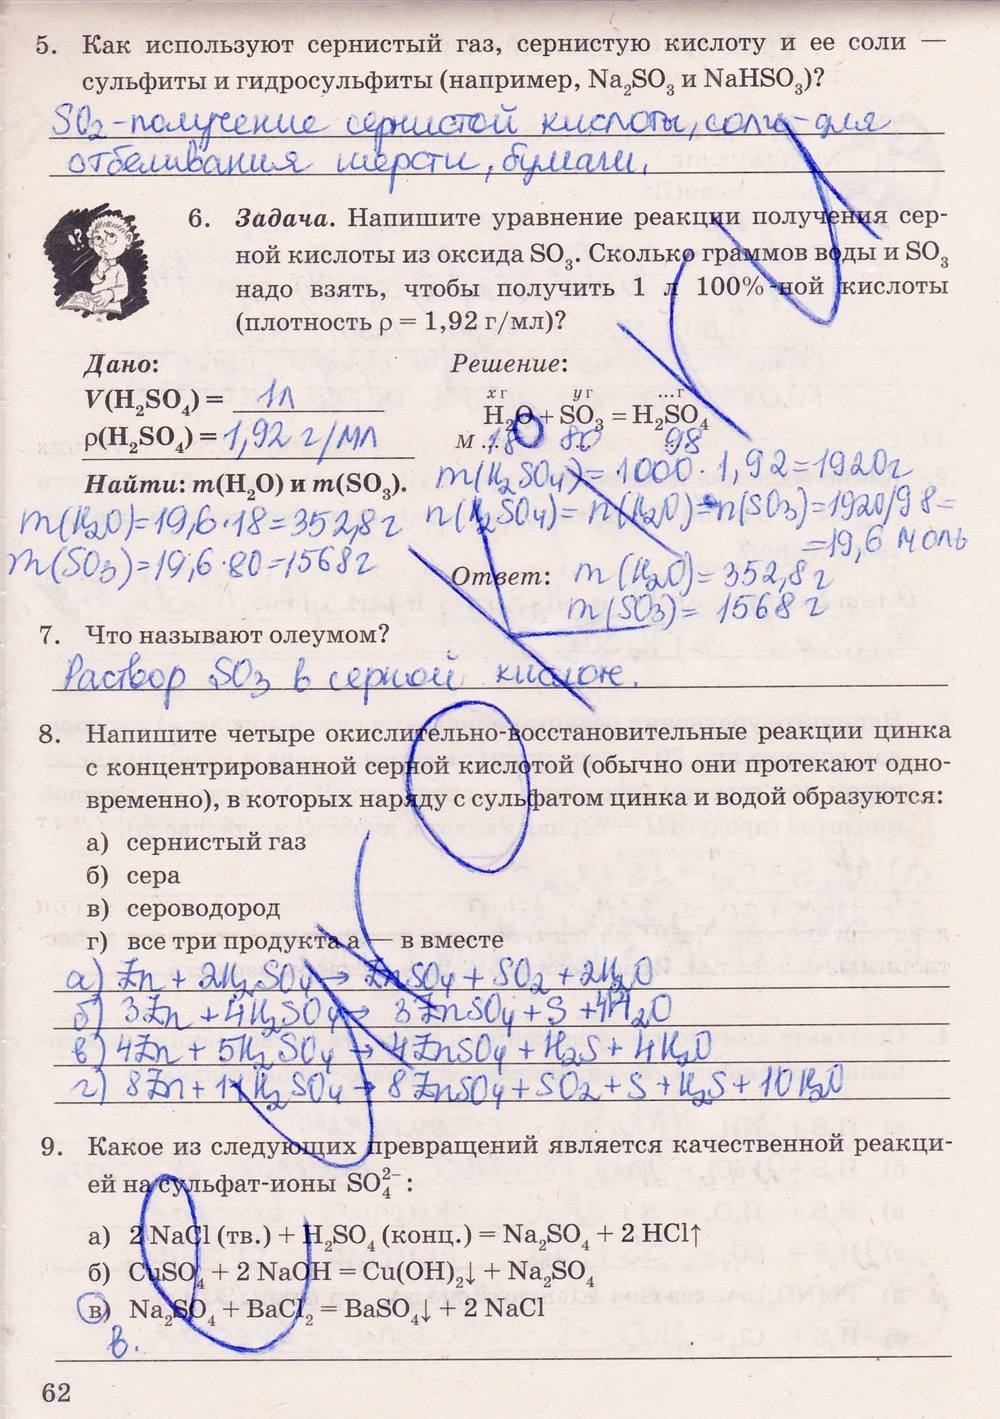 5. Как используют сернистый газ, сернистую кислоту и ее соли —
сульфиты и гидросульфиты (например, Na₂SO₃ и NaHSO₃)?
SO₂-получение сернистой кислоты, соли-для
отбеливания шерсти, бумаги.
6. Задача. Напишите уравнение реакции получения сер-
ной кислоты из оксида SO₃. Сколько граммов воды и SO₃
надо взять, чтобы получить 1 л 100%-ной кислоты
(плотность ρ = 1,92 г/мл)?
Дано: Решение:
V(H₂SO₄) = 1л
х г у г ...г
H₂O + SO₃ = H₂SO₄
ρ(H₂SO₄) = 1,92 г/мл
М 18 80 98
Найти: m(H₂O) и m(SO₃).
m(H₂SO₄) = 1000 · 1,92 = 1920г
m(H₂O)=19,6·18=352,8 г
n(H₂SO₄) = n(H₂O) = n(SO₃) = 1920/98 =
=19,6 моль
m(SO₃)=19,6·80=1568г
Ответ: m(H₂O) = 352,8г
m(SO₃) = 1568 г
7. Что называют олеумом?
Раствор SO₃ в серной кислоте.
8. Напишите четыре окислительно-восстановительные реакции цинка
с концентрированной серной кислотой (обычно они протекают одно-
временно), в которых наряду с сульфатом цинка и водой образуются:
а) сернистый газ
б) сера
в) сероводород
г) все три продукта а — в вместе
а) Zn + 2H₂SO₄ → ZnSO₄ + SO₂ + 2H₂O
б) 3Zn + 4H₂SO₄ → 3ZnSO₄ + S + 4H₂O
в) 4Zn + 5H₂SO₄ → 4ZnSO₄ + H₂S + 4H₂O
г) 8Zn + H₂SO₄ → 8ZnSO₄ + SO₂ + S + H₂S + 10H₂O
9. Какое из следующих превращений является качественной реакци-
ей на сульфат-ионы SO₄²⁻:
а) 2 NaCl (тв.) + H₂SO₄ (конц.) = Na₂SO₄ + 2 HCl↑
б) CuSO₄ + 2 NaOH = Cu(OH)₂↓ + Na₂SO₄
в) Na₂SO₄ + BaCl₂ = BaSO₄↓ + 2 NaCl
в.
62